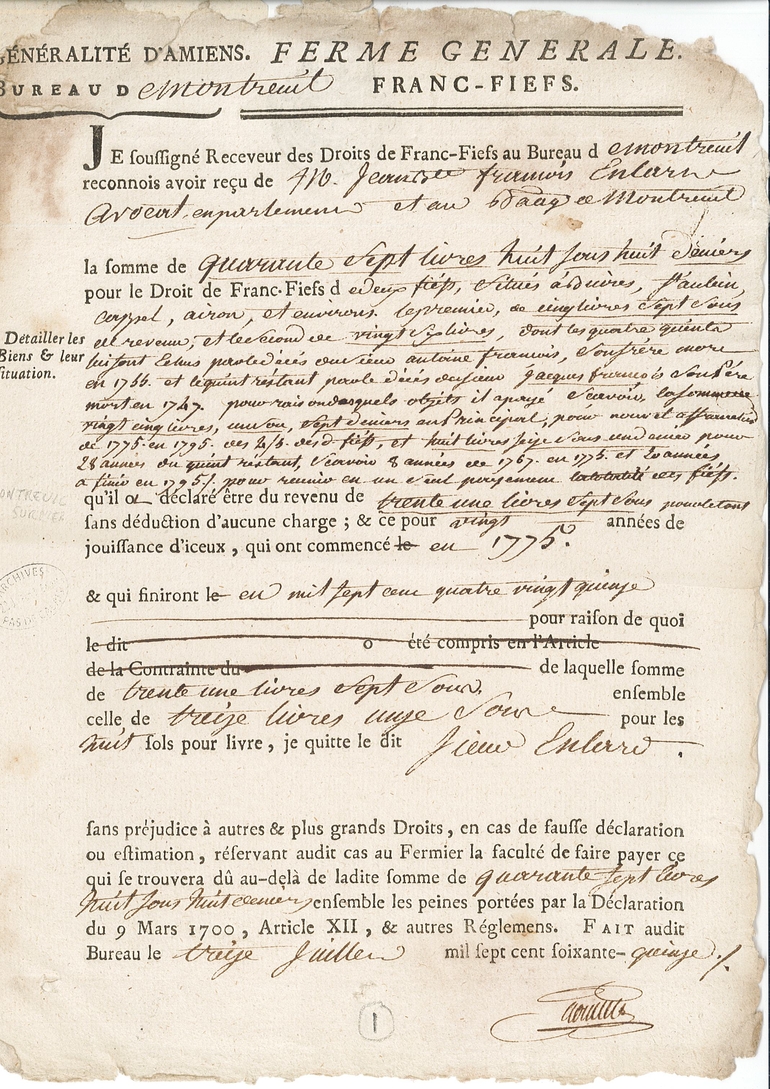 GÉNÉRALITÉ D'AMIENS. FERME GENERALE.
BUREAU D emontreuil FRANC-FIEFS.
JE soussigné Receveur des Droits de Franc-Fiefs au Bureau d emontreuil
reconnois avoir reçu de Mr. Jean francois Enlart
avocat enparlement et au de Montreuil
la somme de quarante sept livres huit sous huit deniers
pour le Droit de Franc-Fiefs d edeux fiefs, situés St aubin,
airon, et environs. le premier, de cinq livres sept sous
de revenu; et le second de vingt six livres, dont les quatre quints
Détailler les
Biens & leur
situation.
lui sont Echus par le décés du sieur antoine francois, son frére mort
en 1766. et le quint réstant par le décés du sieur Jacques francois son Pére
mort en 1747. pour raison desquels objets il a payé Scavoir, la somme de
vingt cinq livres, un sou, sept deniers en Principal, pour nouvel affranchis
de 1775. en 1795. des 4/5. des d. fiefs, et huit livres seize sous un denier pour
28 années du quint réstant, Scavoir 8 années de 1767. en 1775. et 20 années
a finir en 1795 pour reunir en un seul payement la totalité des fiefs.
qu'il a déclaré être du revenu de trente une livres sept sous
sans déduction d'aucune charge ; & ce pour vingt années de
jouissance d'iceux, qui ont commencé le en 1775.
& qui finiront le en mil sept cent quatre vingt quinze
pour raison de quoi
le dit o été compris en l'Article
de la Contrainte du de laquelle somme
de trente une livres sept sous ensemble
celle de treize livres unze sous pour les
huit sols pour livre, je quitte le dit sieur Enlart.
sans préjudice à autres & plus grands Droits, en cas de fausse déclaration
ou estimation, réservant audit cas au Fermier la faculté de faire payer ce
qui se trouvera dû au-delà de ladite somme de quarante sept livres
huit sous huit deniers ensemble les peines portées par la Déclaration
du 9 Mars 1700, Article XII, & autres Réglemens. FAIT audit
Bureau le treize Juillet mil sept cent soixante-quinze
1